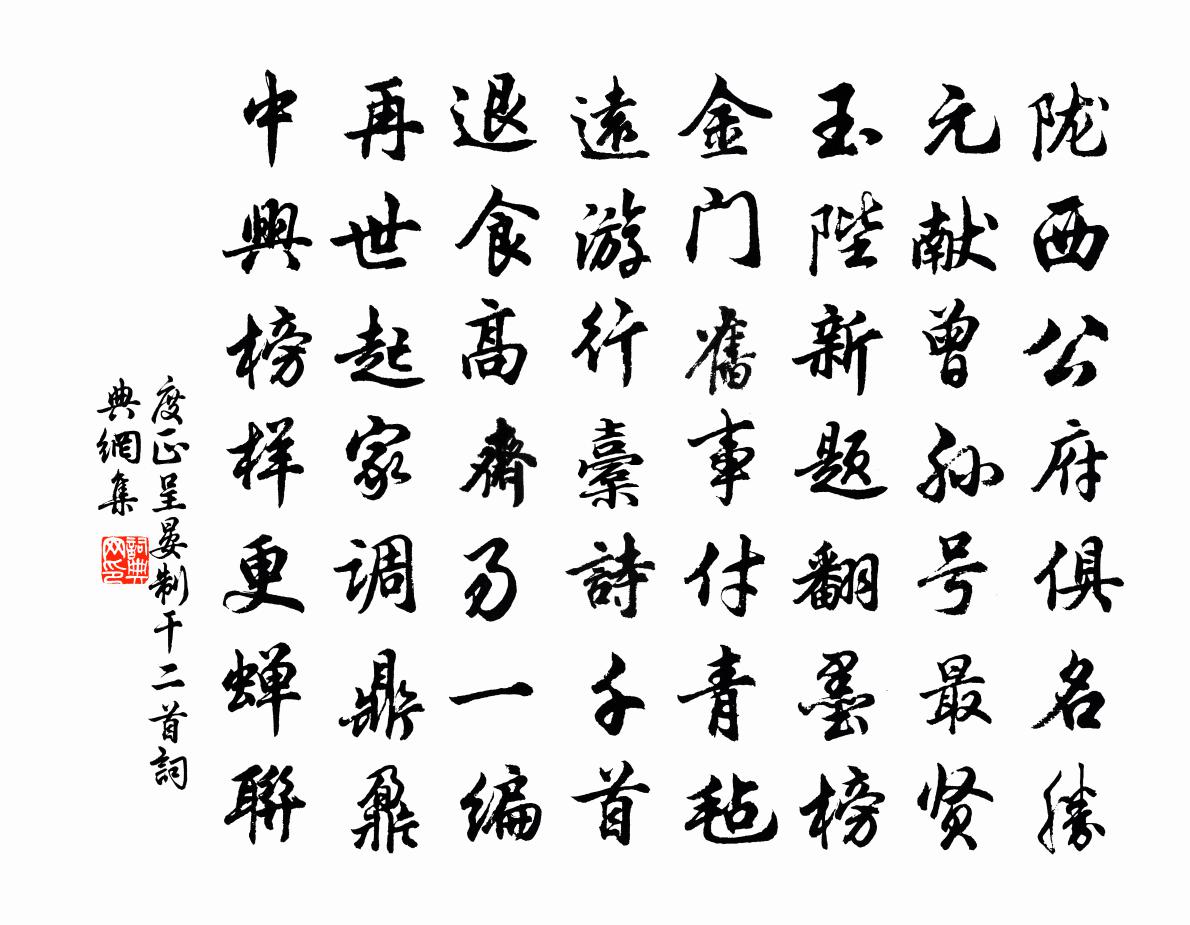 陇西公府俱名勝
元献曾孙号最贤
玉陛新题翻墨榜
金门舊事付青毡
遠游行橐詩千首
退食高齋易一编
再世起家调鼎鼐
中興榜样更蝉聯
度正呈晏制干二首詞
典網集
詞典
网印